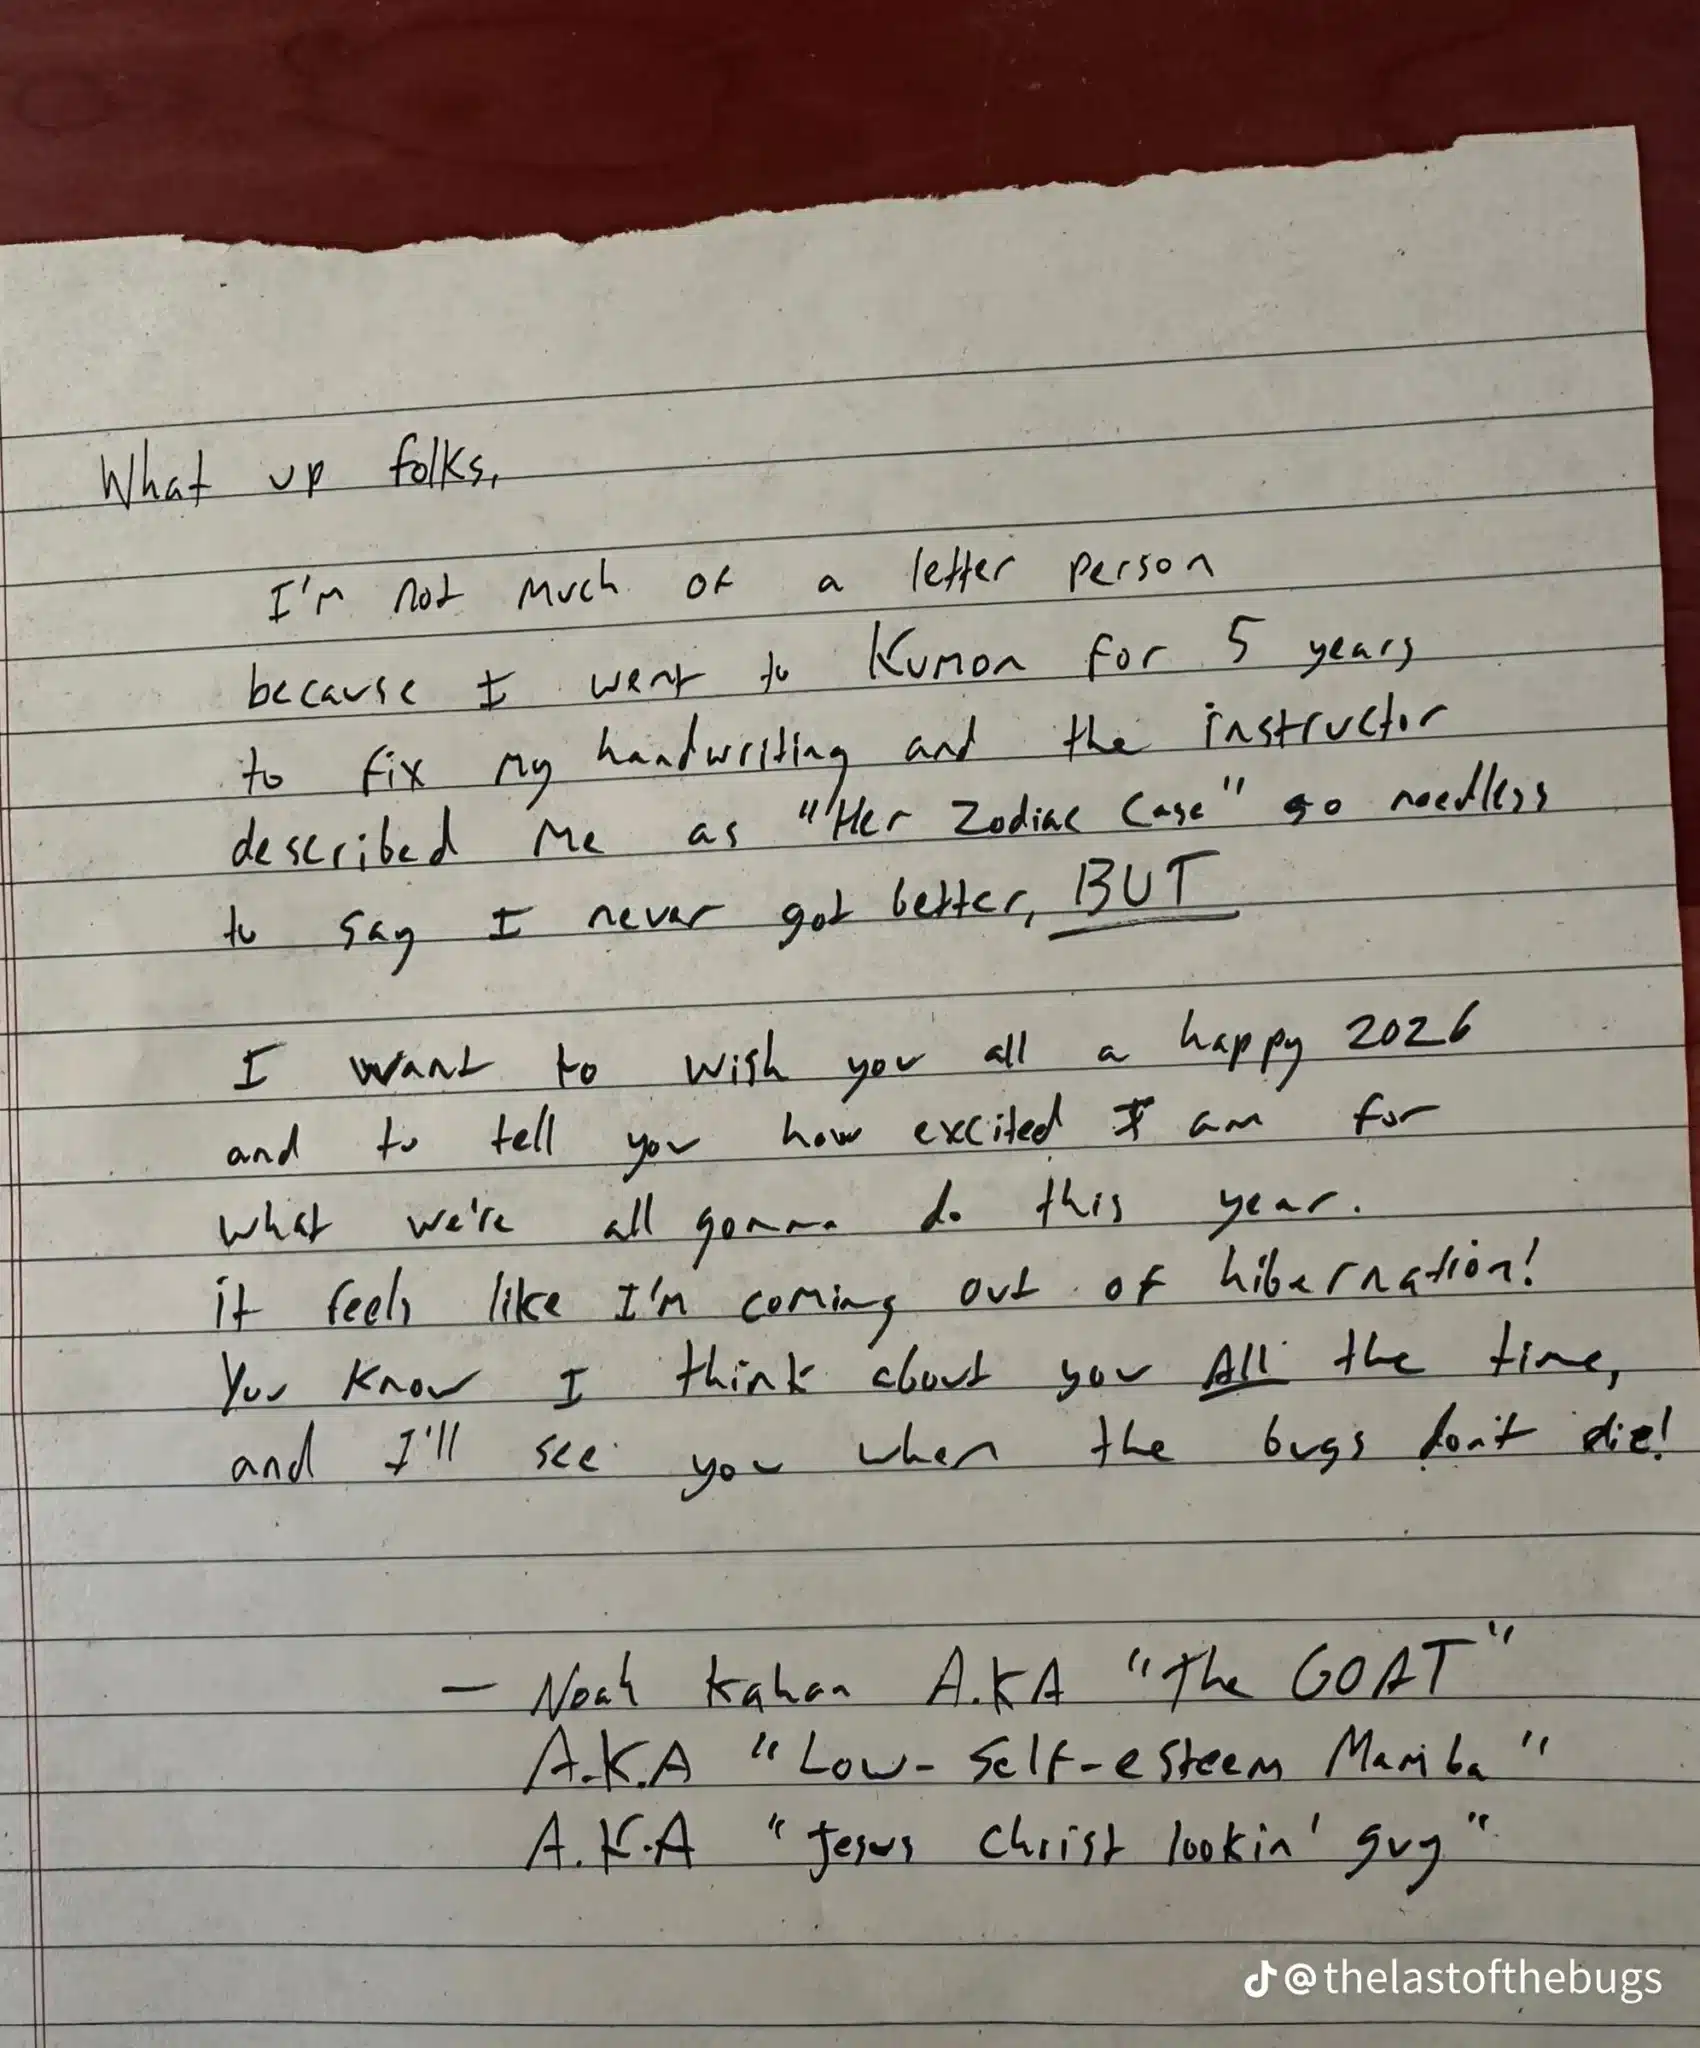 What up folks,
I'm not much of a letter person
because I went to Kumon for 5 years
to fix my handwriting and the instructor
described me as "Her Zodiac Case" so needless
to say I never got better, BUT
I want to wish you all a happy 2026
and to tell you how excited I am for
what we're all gonna do this year.
it feels like I'm coming out of hibernation!
You know I think about you All the time,
and I'll see you when the bugs don't die!
– Noah Kahan A.KA "The GOAT"
A.K.A "Low-self-esteem Mamba"
A.K.A "Jesus Christ lookin' guy"
@thelastofthebugs